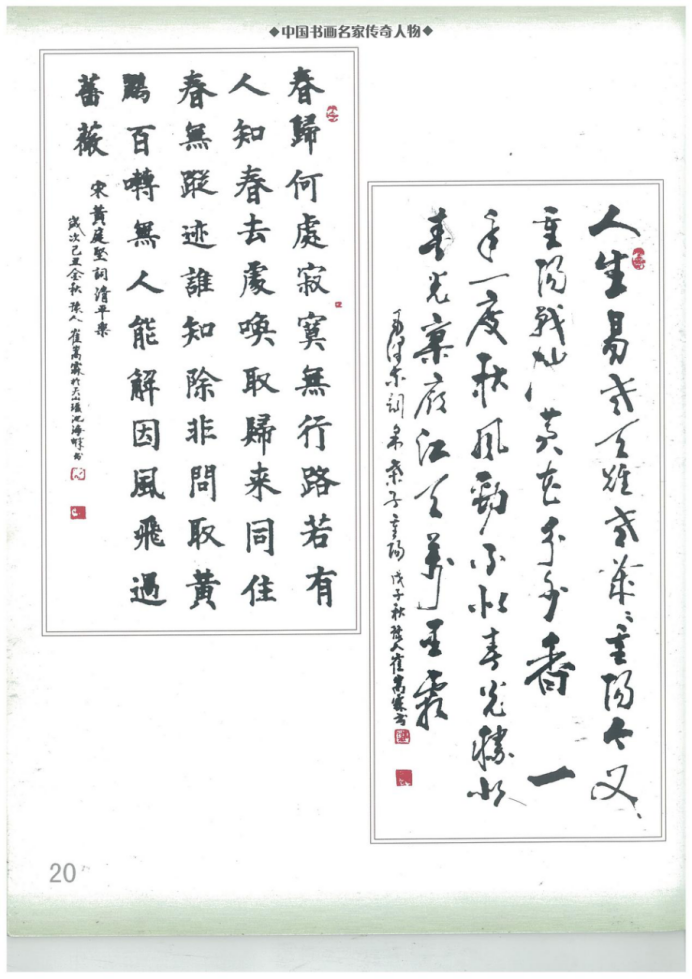 ◆中国书画名家传奇人物◆
春歸何處寂寞無行路若有
人知春去處喚取歸來同住
春無蹤迹誰知除非問取黃
鸝百囀無人能解因風飛過
薔薇
宋黃庭堅詞清平樂
歲次己丑金秋豫人崔嵩霖於天山瑤池海畔書
人生易老天難老歲々重陽今又
重陽戰地黃花分外香一
年一度秋風勁不似春光勝似
春光寥廓江天萬里霜
毛澤东詞采桑子重陽戊子秋豫人崔嵩霖書
20